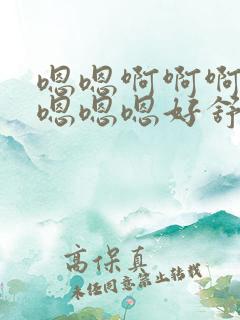 嗯嗯啊啊啊
嗯嗯嗯好舒
高保真
未经同意禁止转载